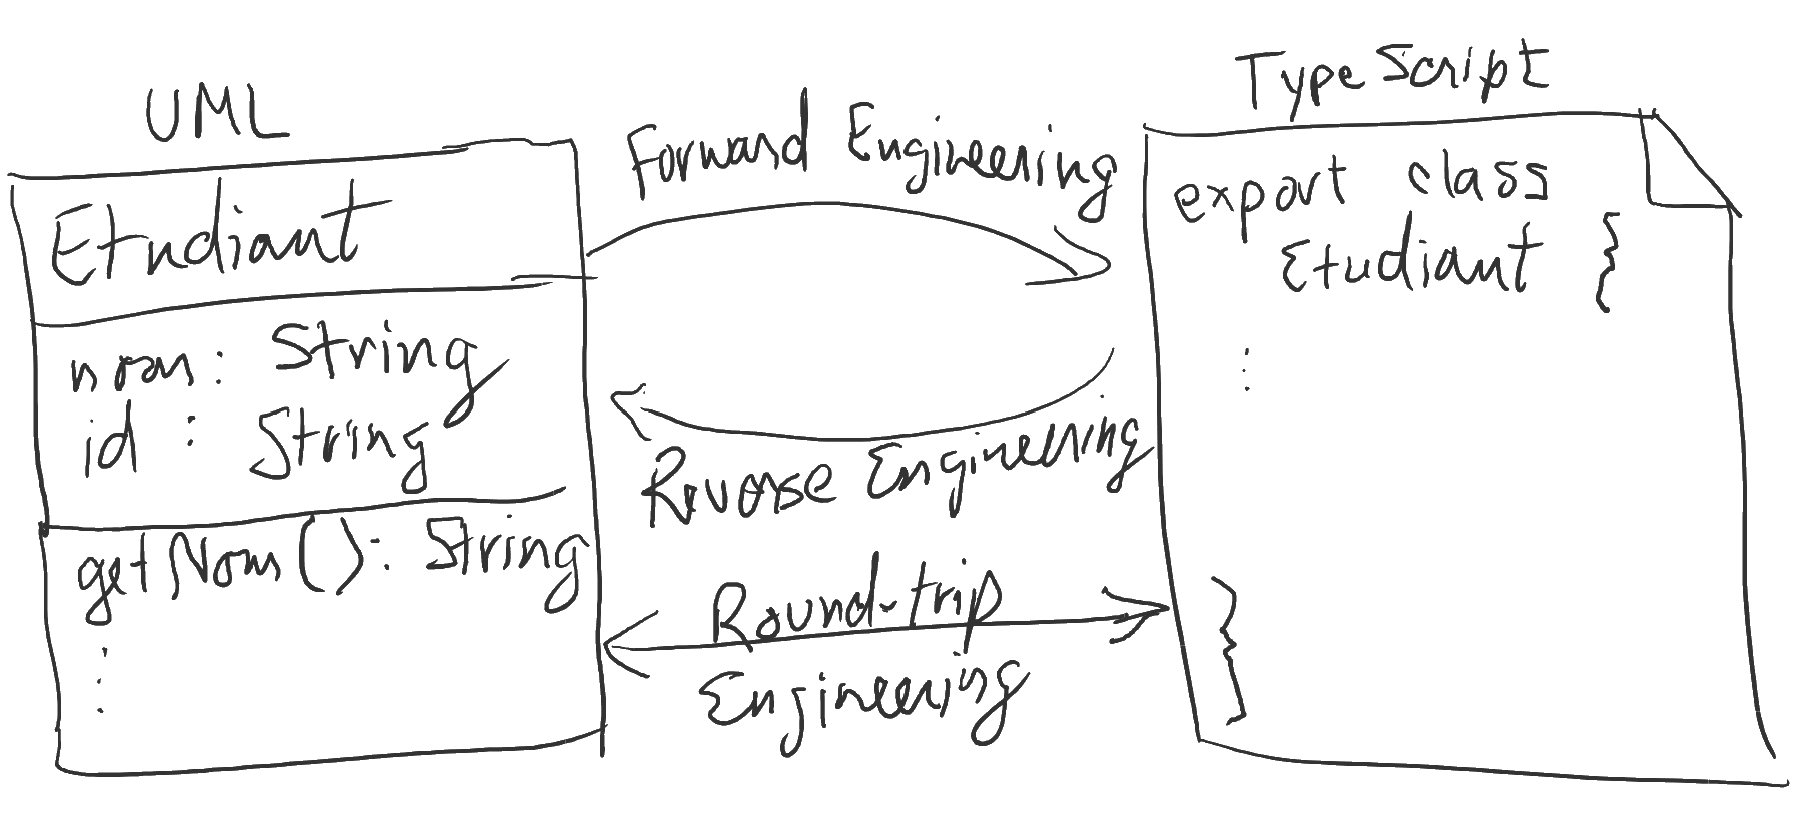 UML
Etudiant
nom: String
id : String
getNom(): String
⋮
Forward Engineering
Reverse Engineering
Round-trip
Engineering
TypeScript
export class
Etudiant {
⋮
}